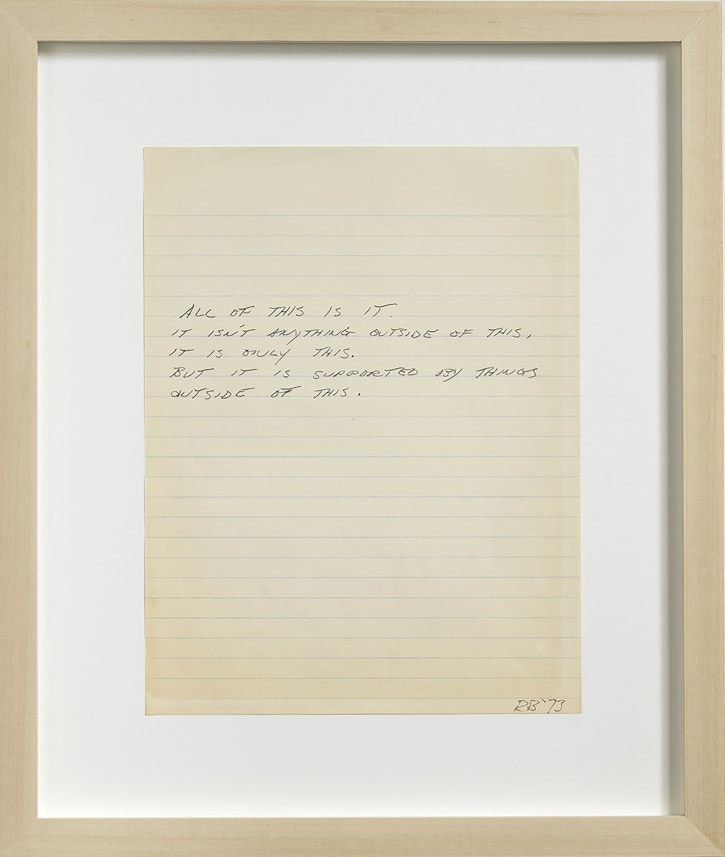 ALL OF THIS IS IT.
IT ISN'T ANYTHING OUTSIDE OF THIS,
IT IS ONLY THIS.
BUT IT IS SUPPORTED BY THINGS
OUTSIDE OF THIS.
RB '73